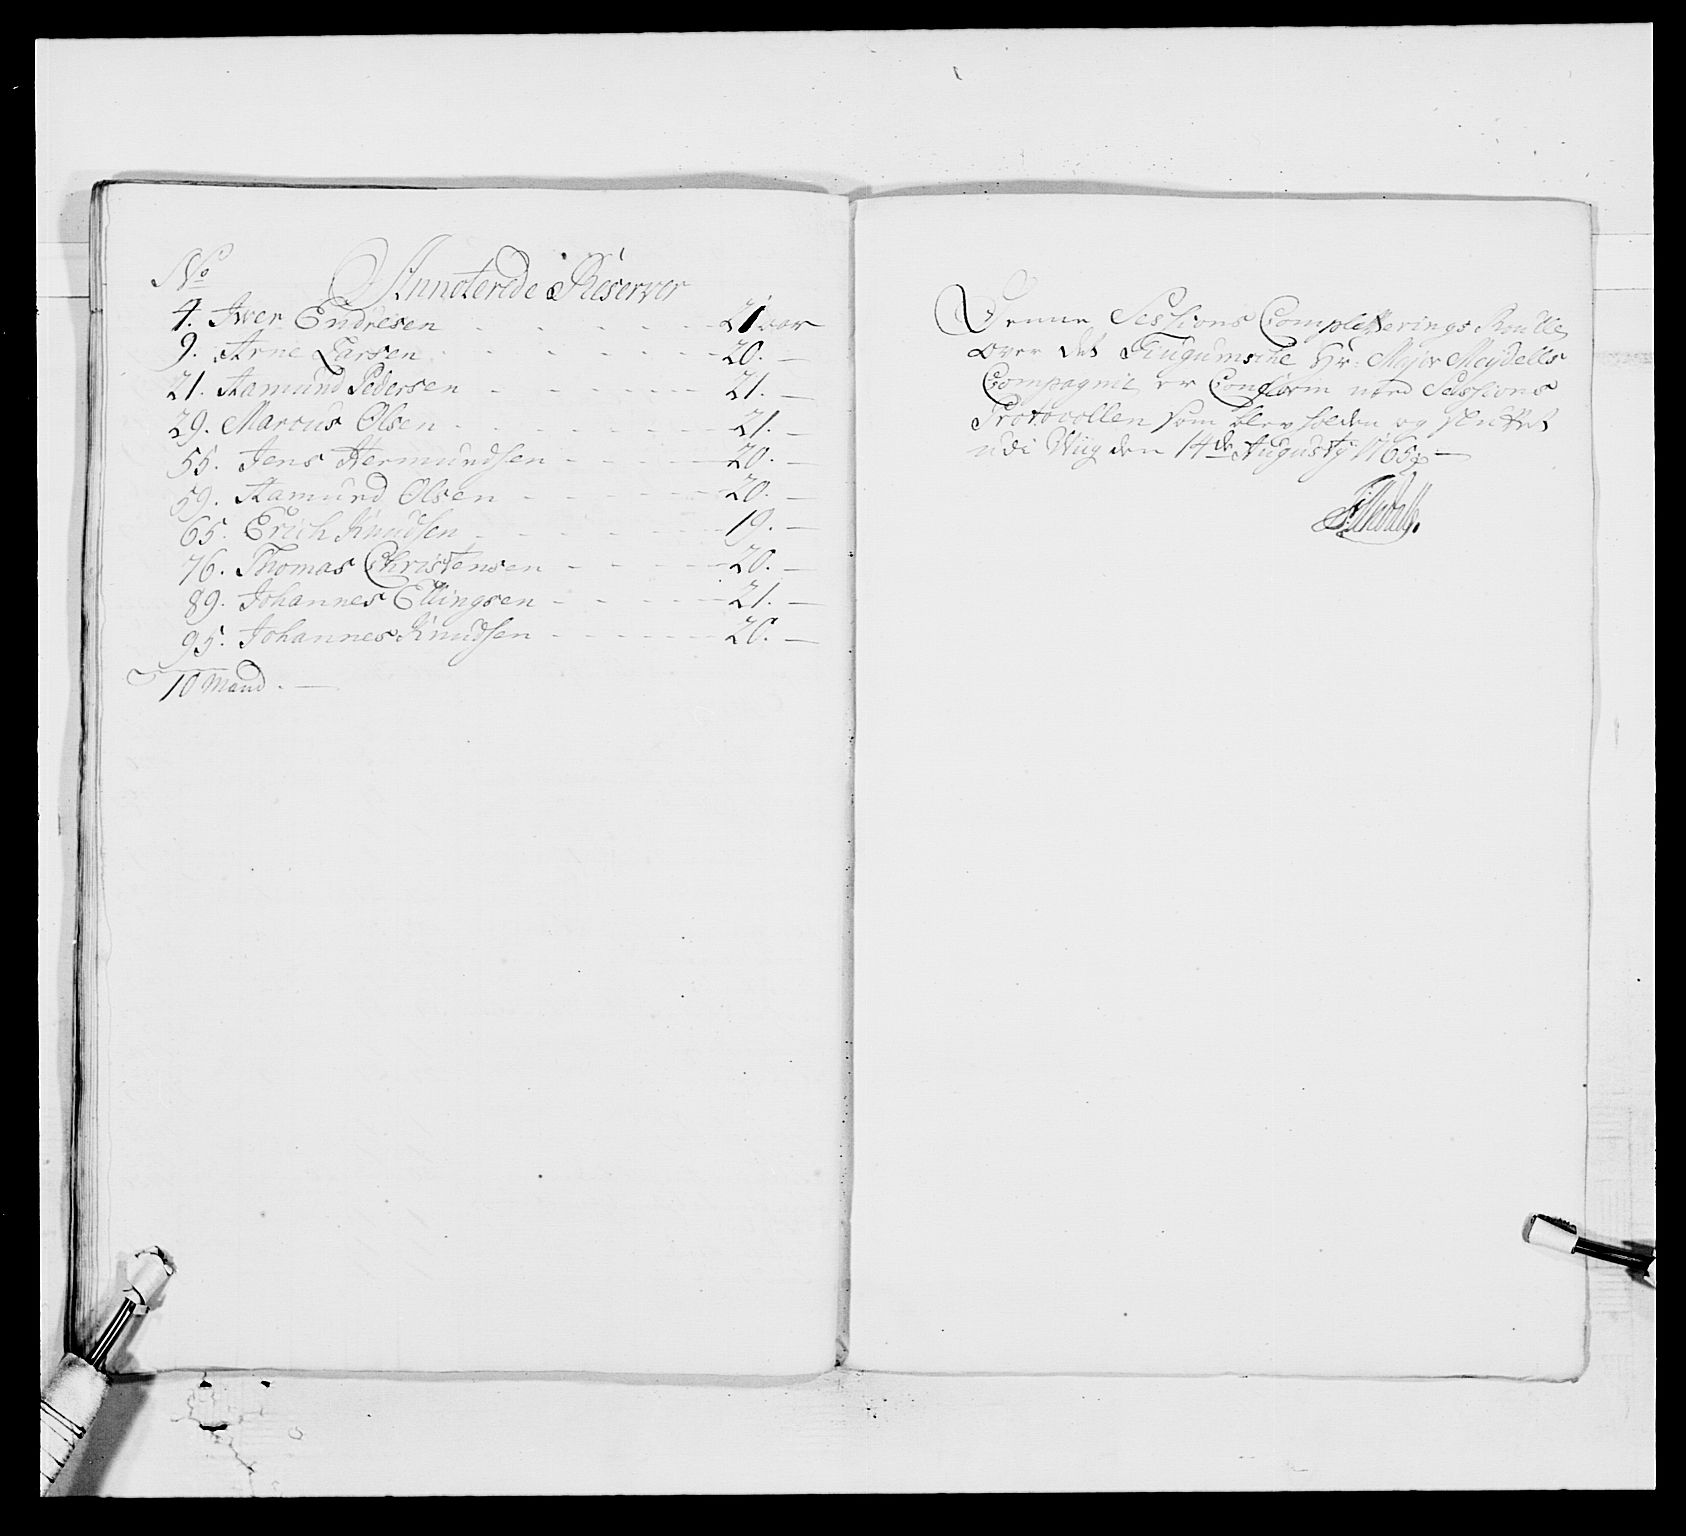 No
Annoterede Reserver
4. Iver Endresen - - - - - - 21 aar
9. Arne Larsen - - - - - - 20. —
21. Aamund Pedersen - - - - - - 21. —
29. Marcus Olsen - - - - - - 21. —
55. Jens Hermundsen - - - - - 20. —
59. Aamund Olsen - - - - - - 20. —
65. Erich Knudsen - - - - - - 19. —
76. Thomas Christensen - - - - - 20. —
89. Johannes Ellingsen - - - - - 21. —
95. Johannes Knudsen - - - - - 20. —
10 Mand. —
Denne Sessions Completterings Roulle
over det Hr: Major Meydells
Compagnie er Conform med Sessions
Protocollen som blev holden og sluttet
udi Wiig den 14de Augusty 1765 —